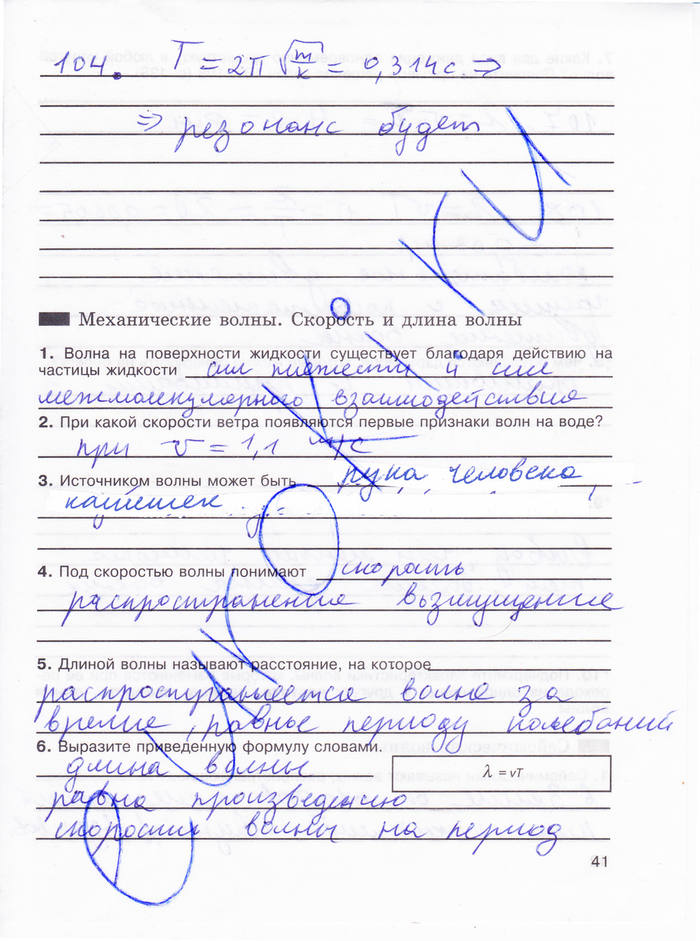 104. T = 2π √m/k = 0,314 с ⇒
⇒ резонанс будет
Механические волны. Скорость и длина волны
1. Волна на поверхности жидкости существует благодаря действию на
частицы жидкости сил тяжести и сил
межмолекулярного взаимодействия
2. При какой скорости ветра появляются первые признаки волн на воде?
при v = 1,1 м/с
3. Источником волны может быть рука человека,
камешек
4. Под скоростью волны понимают скорость
распространения возмущения
5. Длиной волны называют расстояние, на которое
распространяется волна за
время, равное периоду колебаний
6. Выразите приведенную формулу словами.
длина волны
λ = vT
равна произведению
скорости волны на период
41